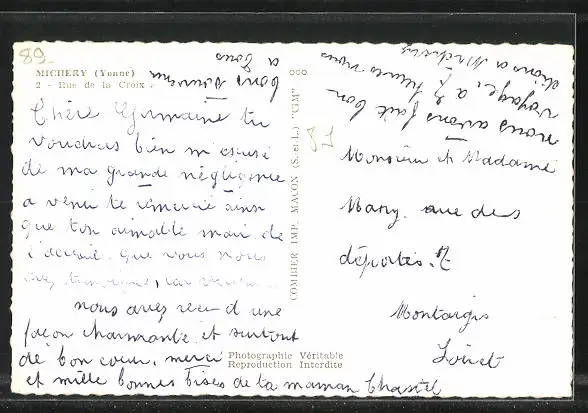 89
MICHERY (Yonne)
2 - Rue de la Croix
Chère Germaine tu
voudras bien m'escusé
de ma grande négligence
a venir te remercié ainsi
que ton aimable mari de
l'accueil que vous nous
avez
nous avez reçu d une
façon charmante et surtout
de bon cœur, merci
et mille bonnes bises de ta maman Chastel
Photographie Véritable
Reproduction Interdite
COMBIER IMP. MACON (S.-et-L.) "GM"
89
Monsieur et Madame
Many. rue des
déportés. 7
Montargis
Loiret
nous avons fait bon
voyage, a 7 heures nous
étions a Michery
bons souvenirs
a tous